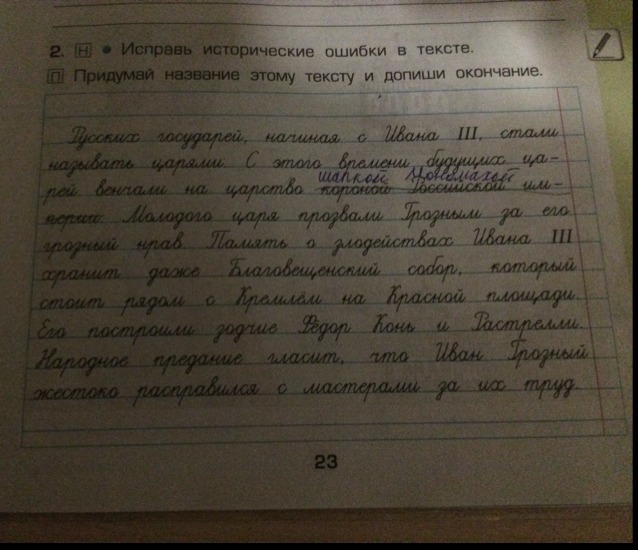 2. Н • Исправь исторические ошибки в тексте.
П Придумай название этому тексту и допиши окончание.
Русских государей, начиная с Ивана III, стали
называть царями. С этого времени будущих ца-
шапкой Мономахой
рей венчали на царство короной Российской им-
перии. Молодого царя прозвали Грозным за его
грозный нрав. Память о злодействах Ивана III
хранит даже Благовещенский собор, который
стоит рядом с Кремлём на Красной площади.
Его построили зодчие Фёдор Конь и Растрелли.
Народное предание гласит, что Иван Грозный
жестоко расправился с мастерами за их труд.
23